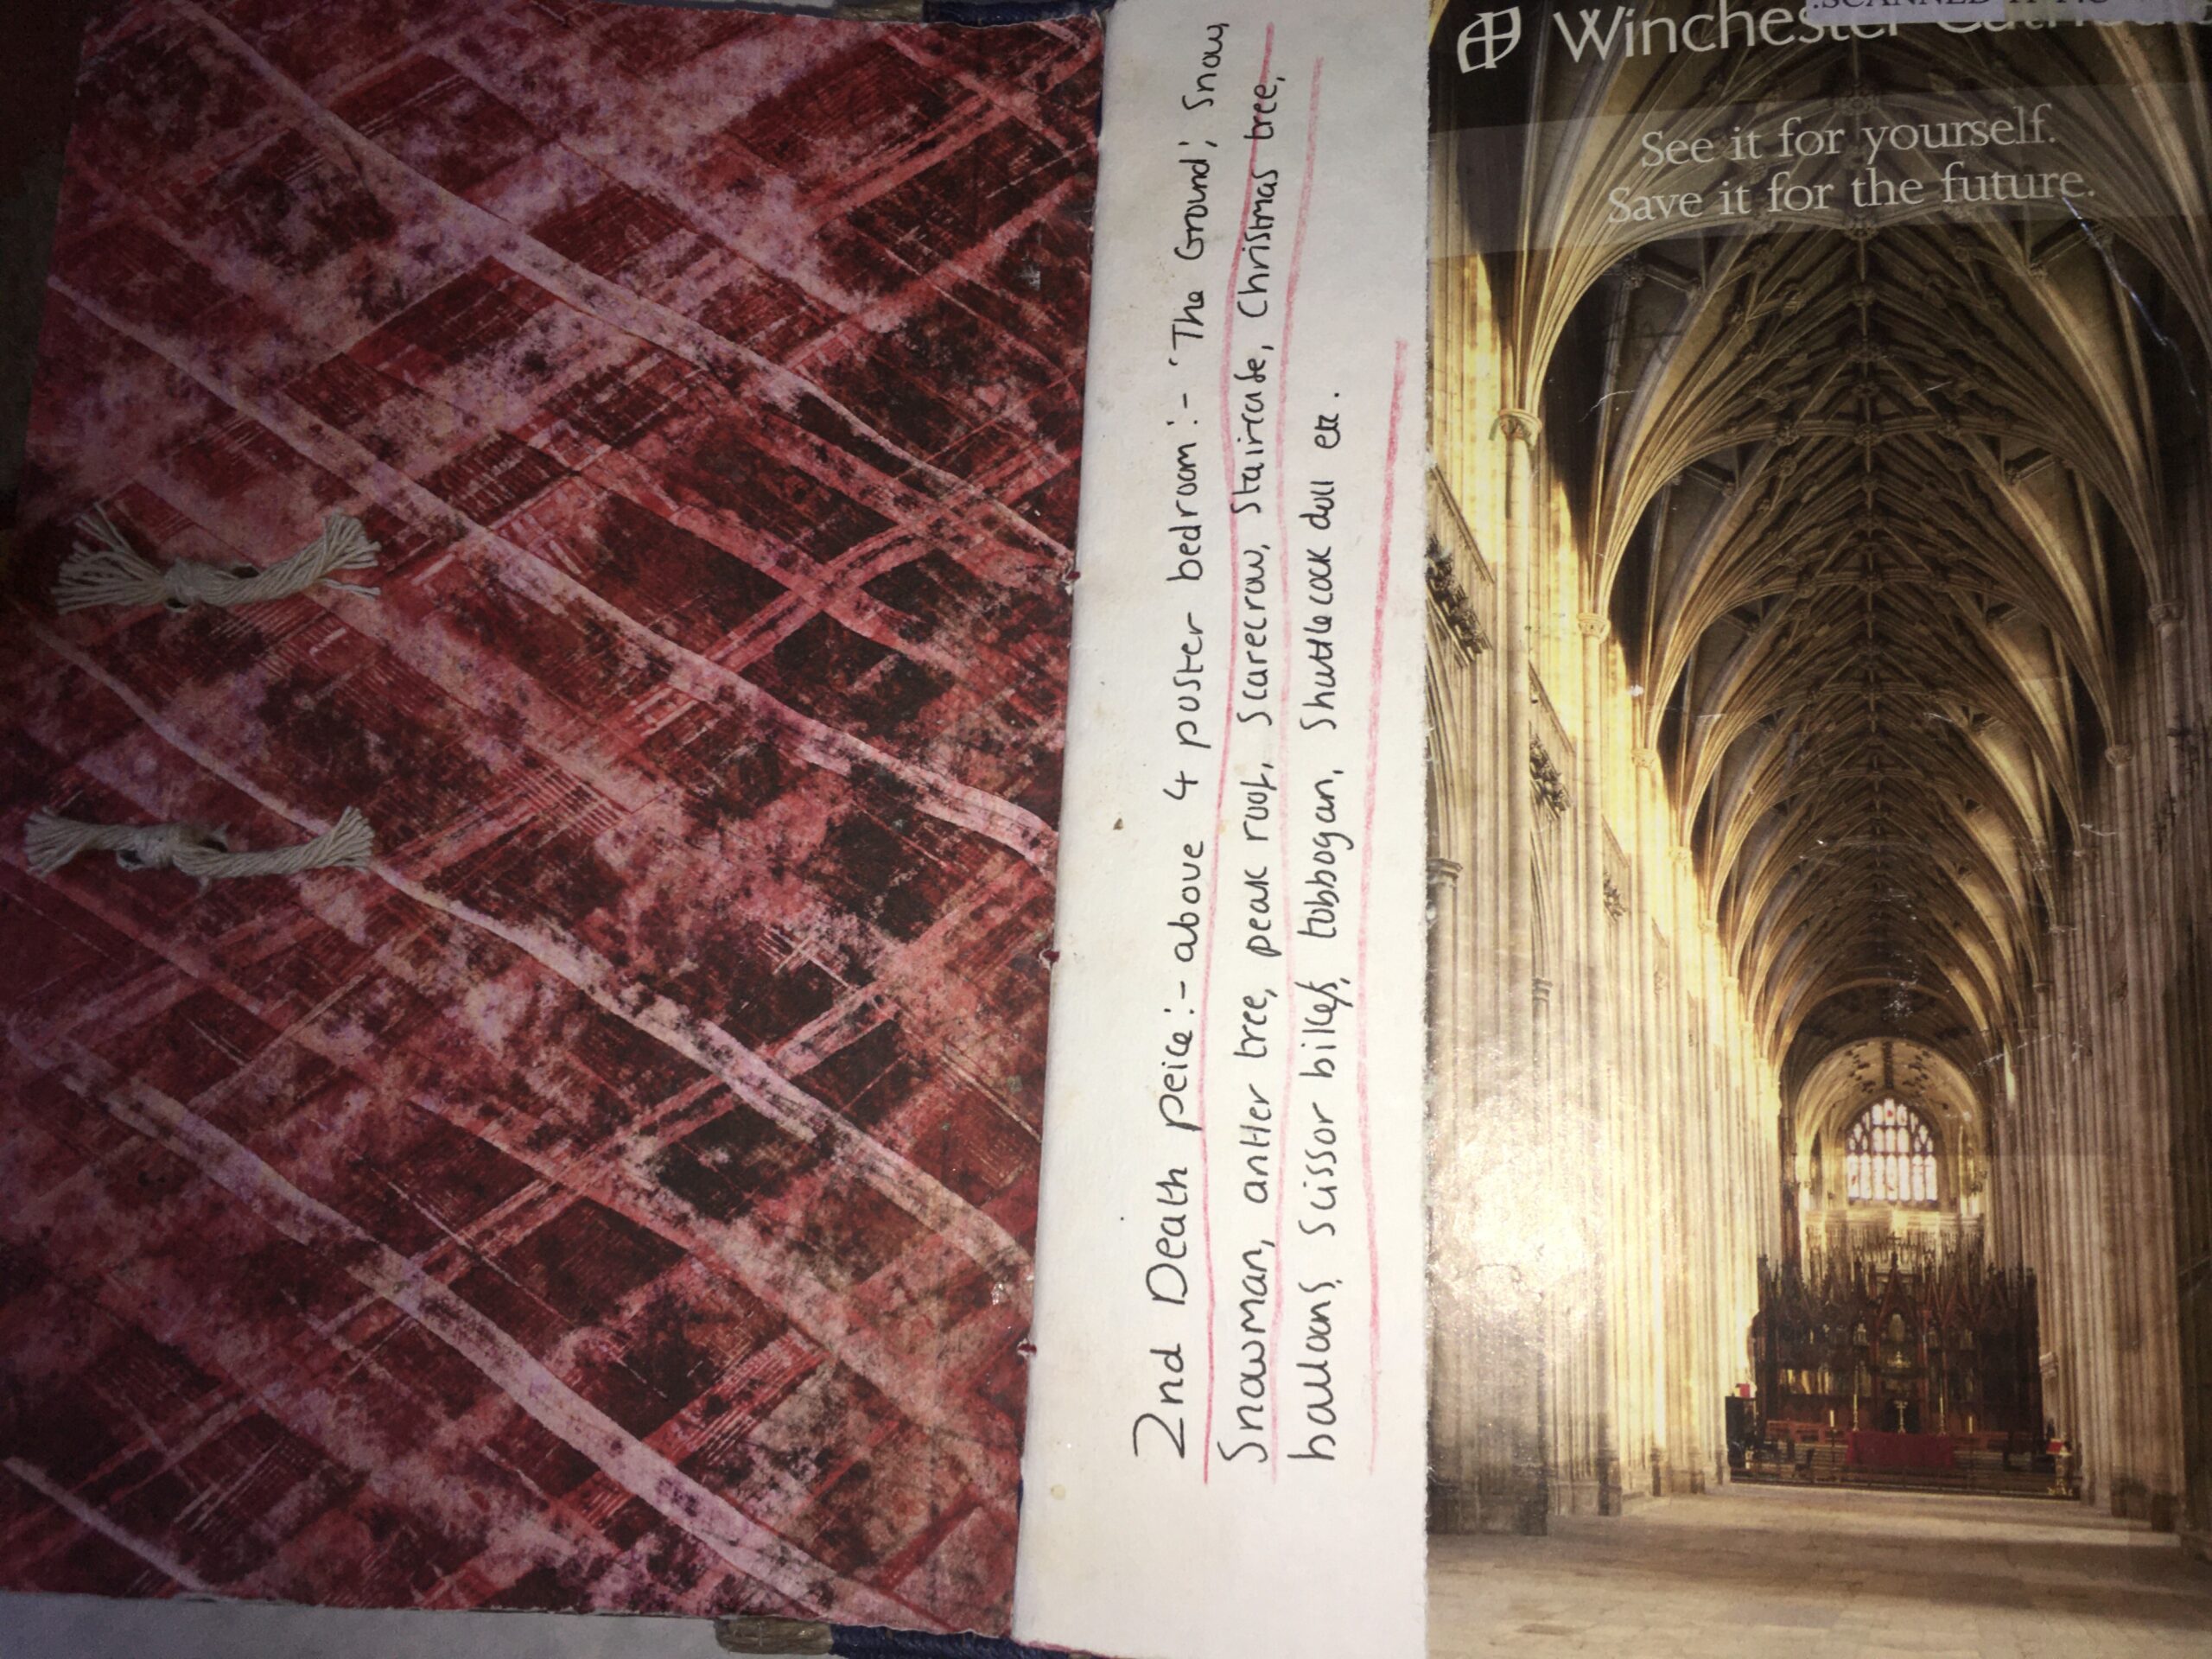 2nd Death peice:- above 4 poster bedroom:- 'The Ground', Snow,
Snowman, antler tree, peak roof, Scarecrow, Staircase, Christmas tree,
baloons, Scissor bikes, tobbogan, Shuttlecock doll etc.
Winchester
See it for yourself.
Save it for the future.